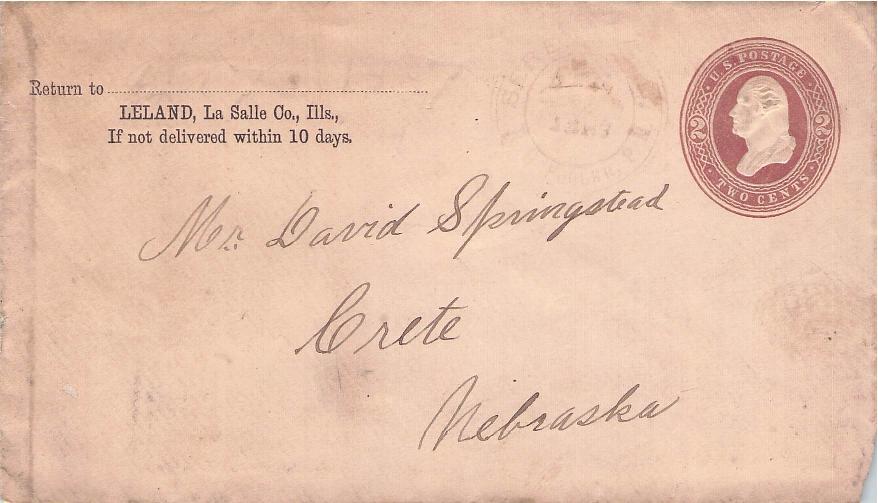 Return to
LELAND, La Salle Co., Ills.,
If not delivered within 10 days.
U.S. POSTAGE
2 2
TWO CENTS
Mr. David Springstead
Crete
Nebraska